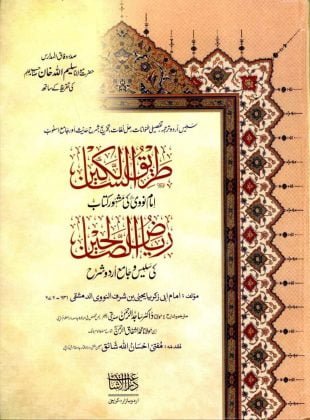 صدر وفاق المدارس
حضرت مولانا سلیم اللہ خان
کی تقریظ کے ساتھ
سلیس اردو ترجمہ، تفصیلی عنوانات، حل لغات، تخریج، شرح حدیث اور جامع اسلوب
طریق السالکین
امام نووی کی مشہور کتاب
ریاض الصالحین
کی سلیس و جامع اردو شرح
مؤلف: امام ابی زکریا یحییٰ بن شرف النووی الدمشقی
ڈاکٹر ساجد الرحمٰن صدیقی
مولانا محمد اشفاق الرحمٰن
مقدمہ: مفتی احسان اللہ شائق
دارالاشاعت
اردو بازار، کراچی